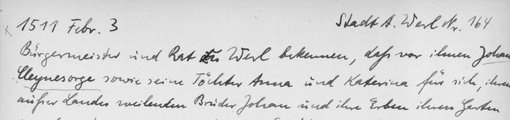 1511 Febr. 3 Stadt A. Werl Nr. 164
Bürgermeister und Rat zu Werl bekennen, daß vor ihnen Johan
Cleynesorge sowie seine Töchter Anna und Katerina für sich, ihren
außer Landes weilenden Bruder Johan und ihre Erben ihren Garten